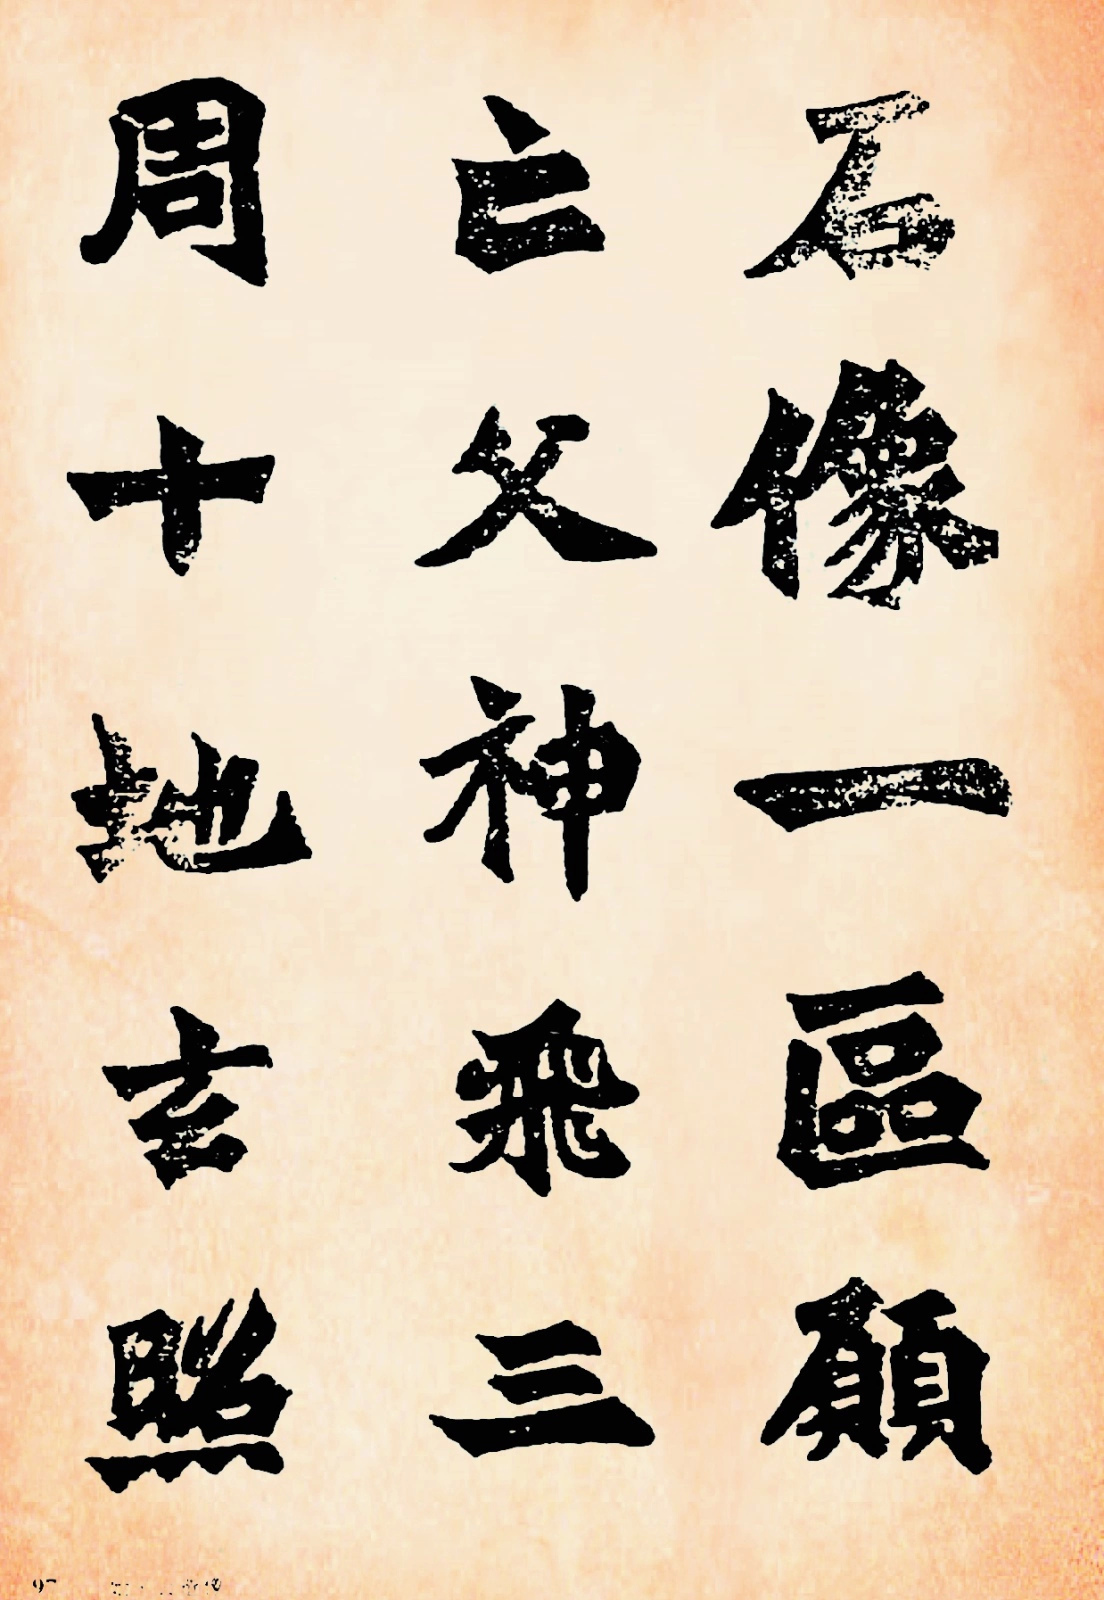 石像一區願
亡父神飛三
周十地玄照
97